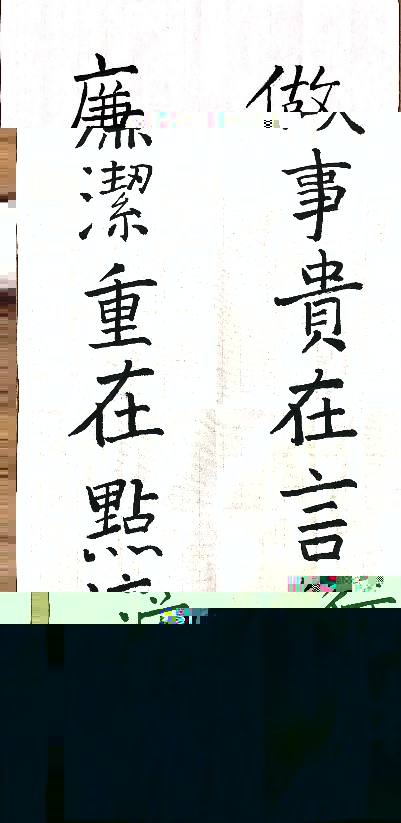 做事貴在言
廉潔重在點